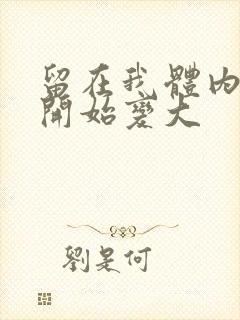 留在我體内
開始變大
劉是何